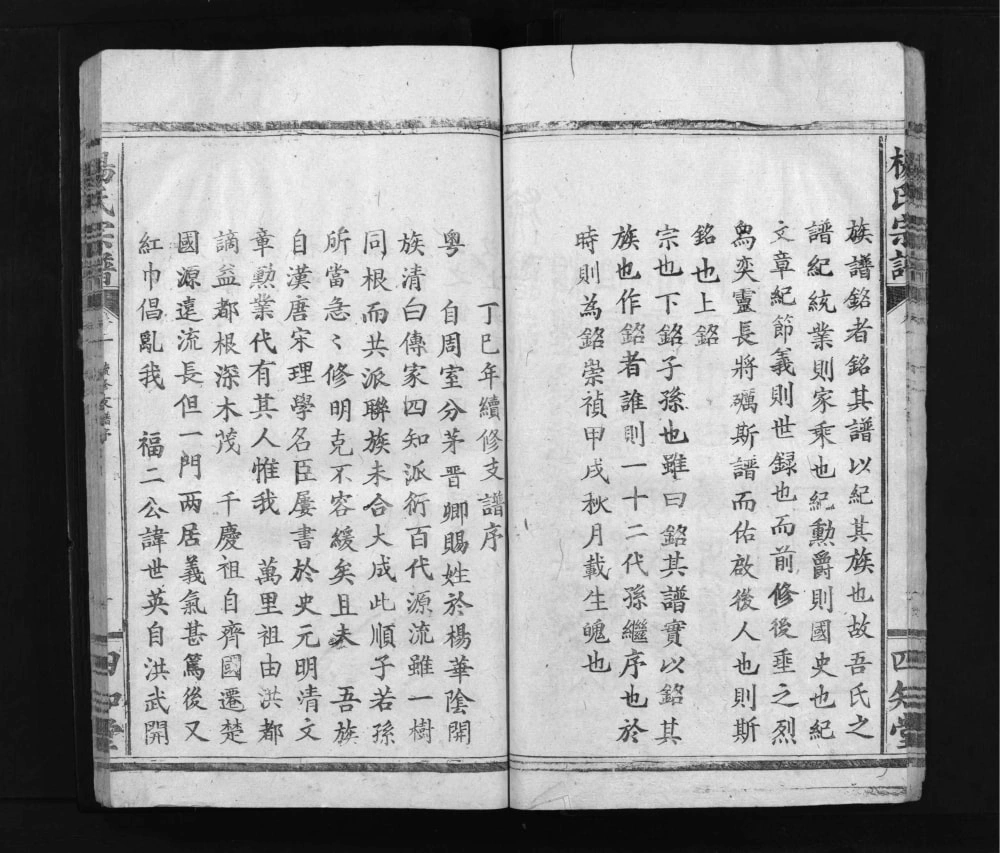 楊氏宗譜
四知堂
族譜銘者銘其譜以紀其族也故吾氏之
譜紀統業則家乘也紀勳爵則國史也紀
文章紀節義則世録也而前修後垂之烈
為奕靈長將礪斯譜而佑啟後人也則斯
銘也上銘
宗也下銘子孫也雖曰銘其譜實以銘其
族也作銘者誰則一十二代孫繼序也於
時則為銘崇禎甲戌秋月載生魄也
丁巳年續修支譜序
粵 自周室分茅晋卿賜姓於楊華陰開
族清白傳家四知派衍百代源流雖一樹
同根而共派聯族未合大成此順子若孫
所當急〻修明克不容緩矣且夫 吾族
自漢唐宋理學名臣屢書於史元明清文
章勳業代有其人惟我 萬里祖由洪都
謫益都根深木茂 千慶祖自齊國遷楚
國源遠流長但一門两居義氣甚篤後又
紅巾倡亂我 福二公諱世英自洪武開
楊氏宗譜
卷一
四知堂